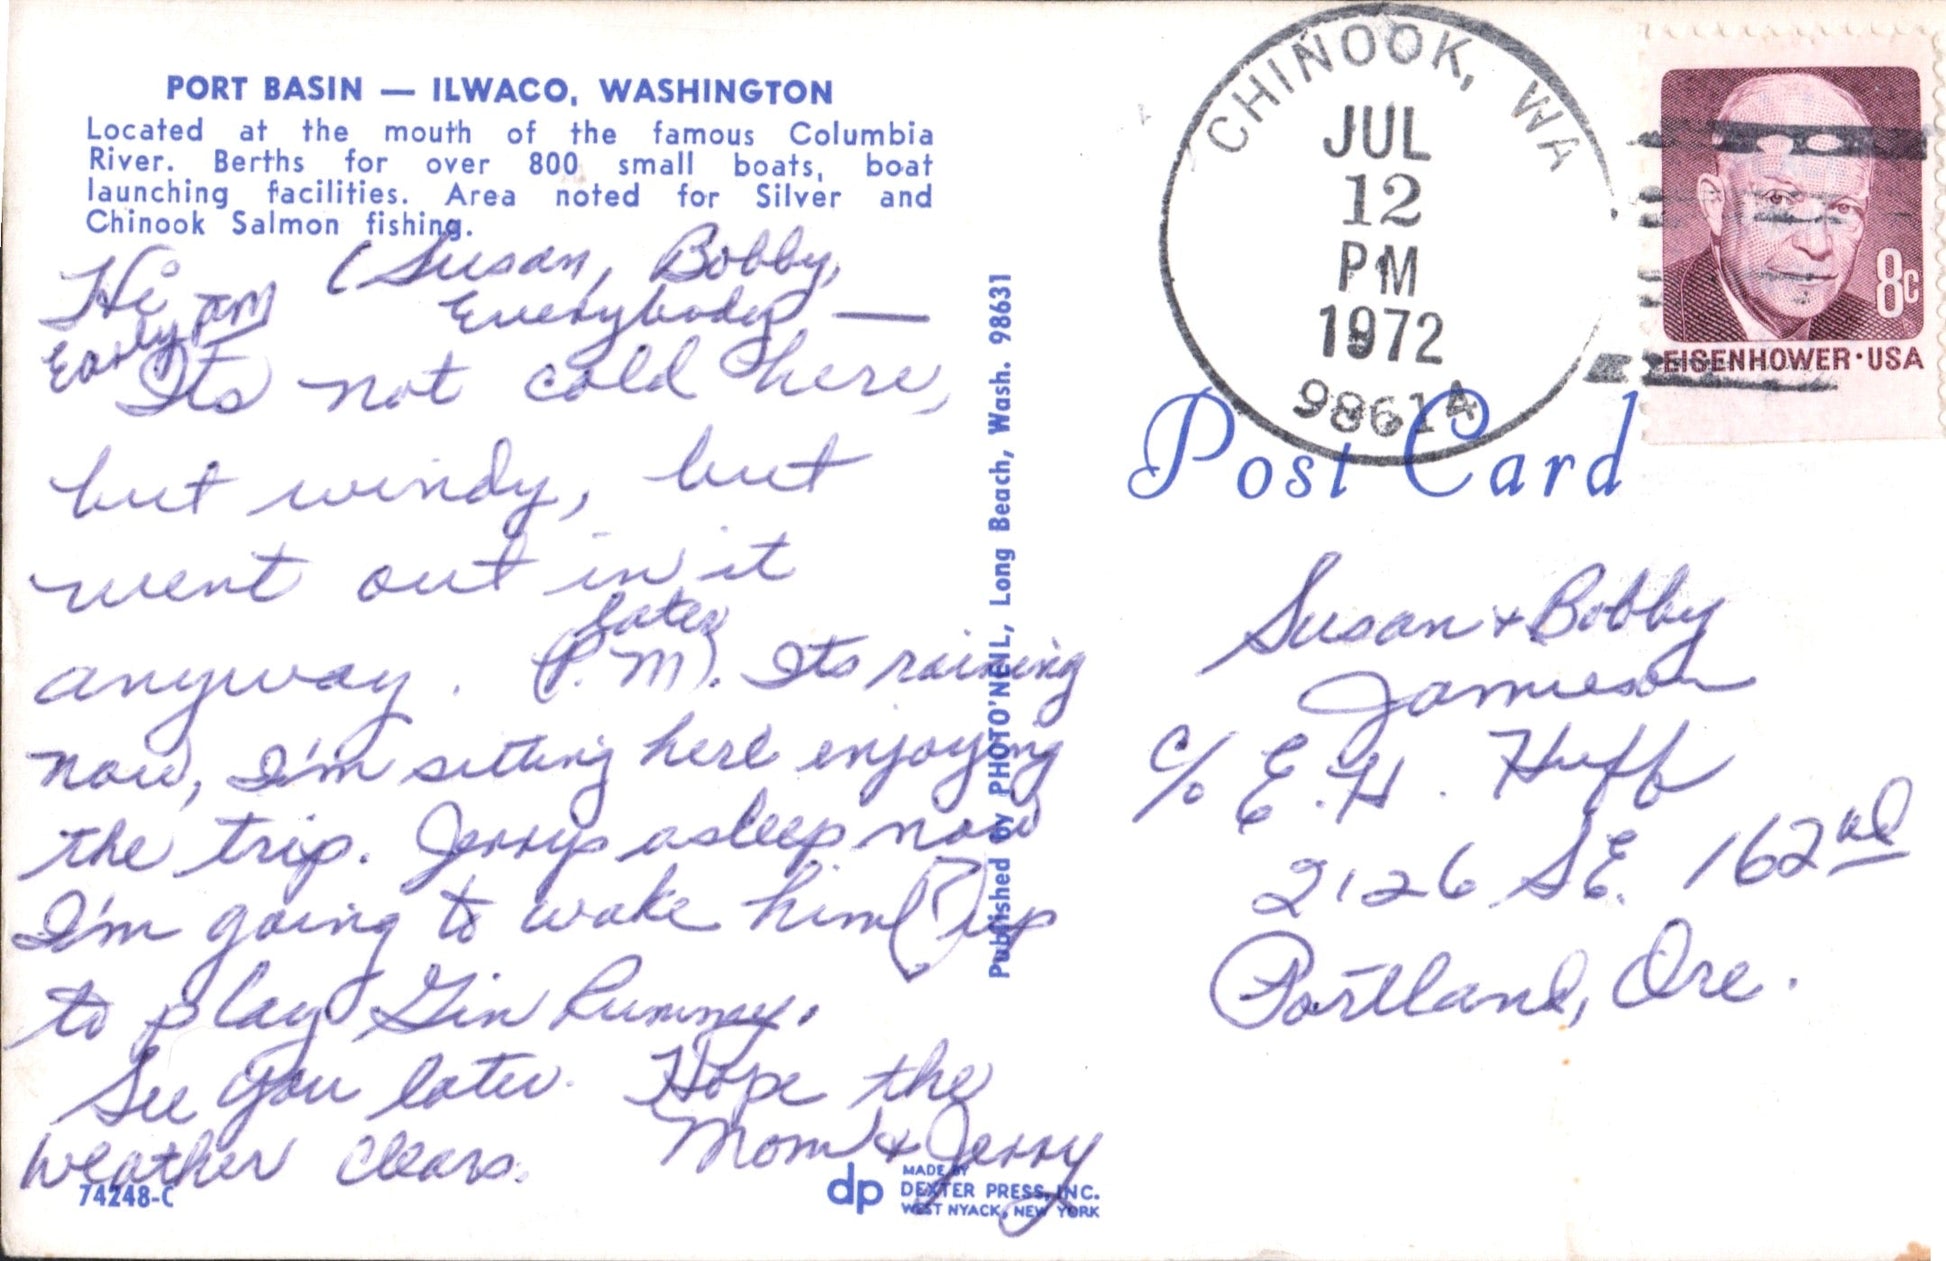 PORT BASIN — ILWACO, WASHINGTON
Located at the mouth of the famous Columbia
River. Berths for over 800 small boats, boat
launching facilities. Area noted for Silver and
Chinook Salmon fishing.
Hi (Susan, Bobby,
Early AM Everybody —
Its not cold here,
but windy, but
went out in it
later
anyway. (P.M). Its raining
now, I'm sitting here enjoying
the trip. Jerrys asleep now
I'm going to wake him up
to play Gin Rummey.
See you later. Hope the
weather clears. Mom & Jerry
74248-C
dp MADE BY
DEXTER PRESS, INC.
WEST NYACK, NEW YORK
Published by PHOTO'NEIL, Long Beach, Wash. 98631
CHINOOK, WA
JUL
12
PM
1972
98614
8c
EISENHOWER·USA
Post Card
Susan + Bobby
Jamieson
c/o E. H. Huff
2126 SE. 162nd
Portland, Ore.